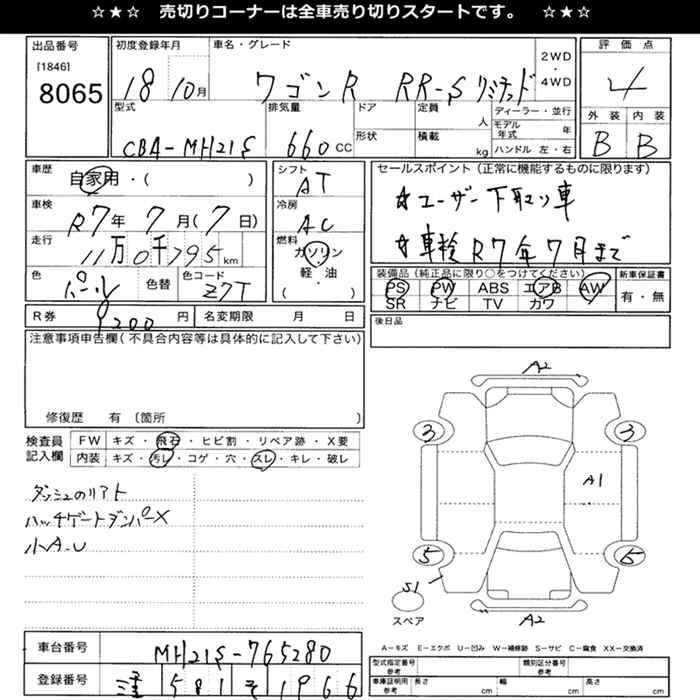 ☆★☆　売切りコーナーは全車売り切りスタートです。　☆★☆
出品番号
[1846]
8065
初度登録年月
18 10月
車名・グレード
ワゴンR RR-Sリミテッド
2WD
・
4WD
評価点
4
外装 内装
B B
型式
CBA-MH21S
排気量
660 CC
ドア
形状
定員
人
積載
kg
ディーラー・並行
モデル年式 年
ハンドル 左・右
車歴
自家用・(　　)
車検
R7年 7月(7日)
走行
11万0千795km
色
パール
色替
色コード
Z7T
シフト
AT
冷房
AC
燃料
ガソリン
軽・油
(　　)
セールスポイント(正常に機能するものに限ります)
☆ユーザー下取り車
☆車検R7年7月まで
装備品(純正品に限り○をつけてください)
PS PW ABS エアB AW
SR ナビ TV カワ
新車保証書
有・無
R券
9200円
名変期限 月 日
後日品
注意事項申告欄(不具合内容等は具体的に記入して下さい)
修復歴 有 〔箇所　　〕
検査員
記入欄
FW キズ・飛石・ヒビ割・リペア跡・X要
内装 キズ・汚レ・コゲ・穴・スレ・キレ・破レ
ダッシュのリアト
ハッチゲートダンパーX
小A.U
A2
3 3
A1
5 5
S1
スペア
A2
A−キズ E−エクボ U−凹み W−補修跡 S−サビ C−腐食 XX−交換済
車台番号
MH21S-765280
登録番号
581 そ 1966
型式指定番号
参考
類別区分番号
参考
車庫証明用
参考
長さ cm 幅 cm 高さ cm